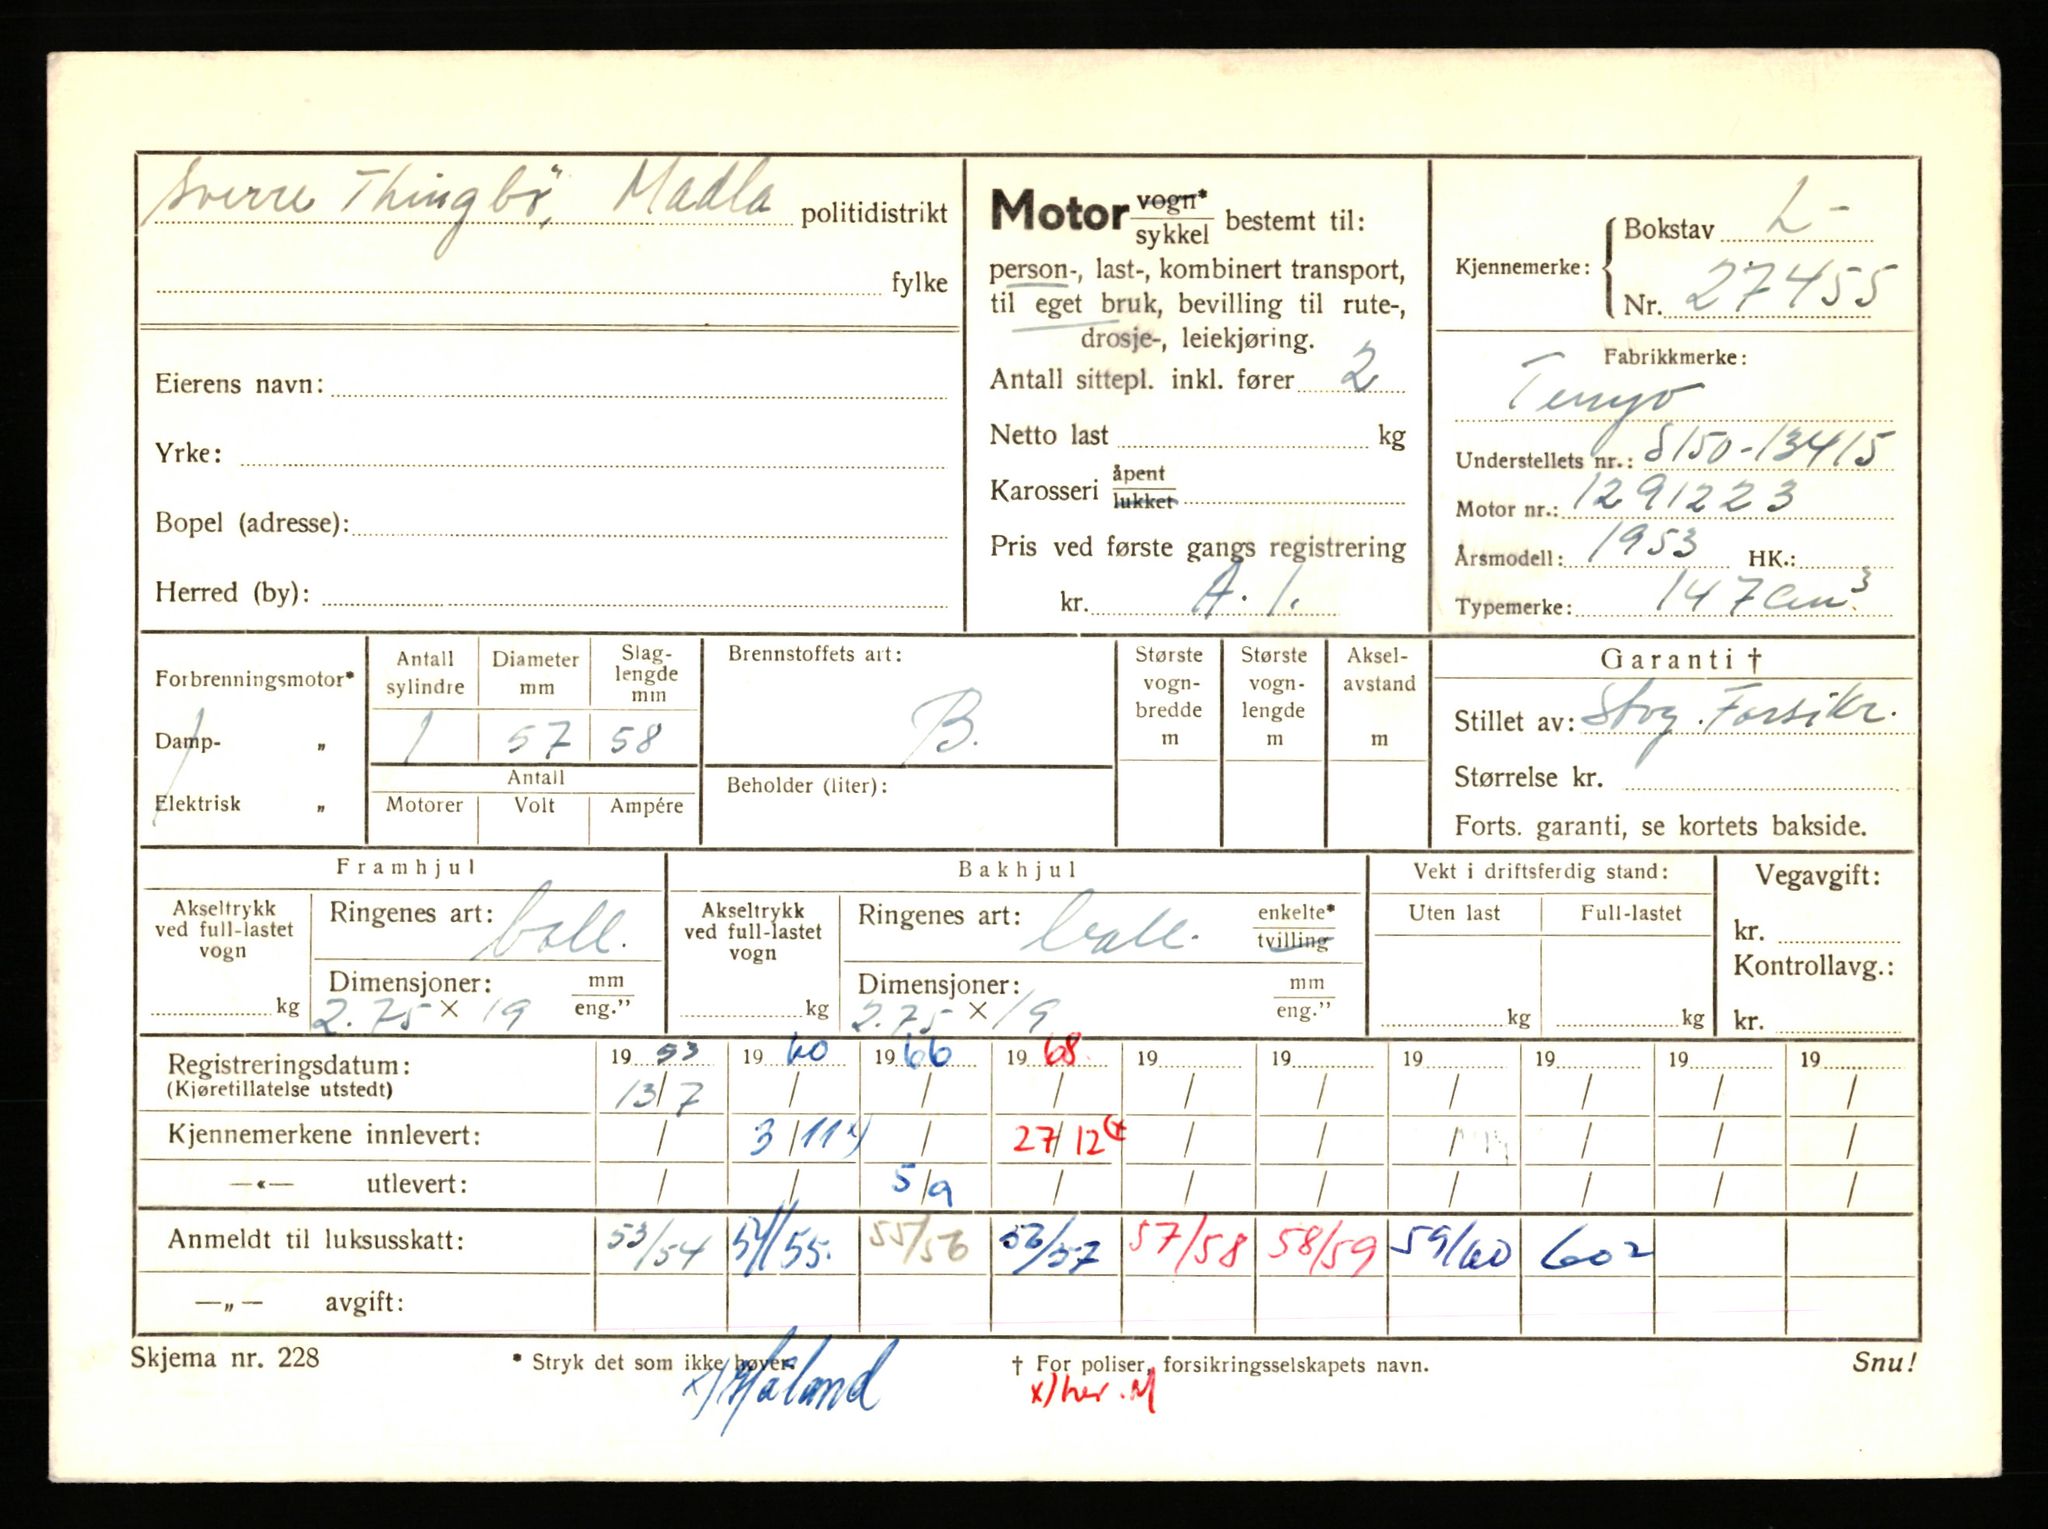 Sverre Thingbö, Madla politidistrikt
fylke
Eierens navn:
Yrke:
Bopel (adresse):
Herred (by):
Motor vogn* / sykkel bestemt til:
person-, last-, kombinert transport,
til eget bruk, bevilling til rute-,
drosje-, leiekjøring.
Antall sittepl. inkl. fører 2
Netto last kg
Karosseri åpent / lukket
Pris ved første gangs registrering
kr. A. 1.
Kjennemerke: { Bokstav L-
Nr. 27455
Fabrikkmerke:
Tempo
Understellets nr.: S150-13415
Motor nr.: 1291223
Årsmodell: 1953 HK.:
Typemerke: 147 cm3
Forbrenningsmotor*
Damp- „
Elektrisk „
Antall sylindre Diameter mm Slag-lengde mm
1 57 58
Antall
Motorer Volt Ampére
Brennstoffets art:
B.
Beholder (liter):
Største vogn-bredde m
Største vogn-lengde m
Aksel-avstand m
Garanti †
Stillet av: Stvg. Forsikr.
Størrelse kr.
Forts. garanti, se kortets bakside.
Framhjul
Akseltrykk ved full-lastet vogn
kg
Ringenes art: ball.
Dimensjoner: mm / eng."
2.75 × 19
Bakhjul
Akseltrykk ved full-lastet vogn
kg
Ringenes art: ball. enkelte* / tvilling
Dimensjoner: mm / eng."
2.75 × 19
Vekt i driftsferdig stand:
Uten last Full-lastet
kg kg
Vegavgift:
kr.
Kontrollavg.:
kr.
Registreringsdatum: 19 53 19 60 19 66 19 68. 19 19 19 19 19 19
(Kjøretillatelse utstedt) 13/7 / / / / / / / / /
Kjennemerkene innlevert: / 3/11 x) / 27/12 (x / / / / / /
—«— utlevert: / / 5/9 / / / / / / /
Anmeldt til luksusskatt: 53/54 54/55. 55/56 56/57 57/58 58/59 59/60 602
—„— avgift:
Skjema nr. 228 * Stryk det som ikke høver. † For poliser, forsikringsselskapets navn. Snu!
x) her. M